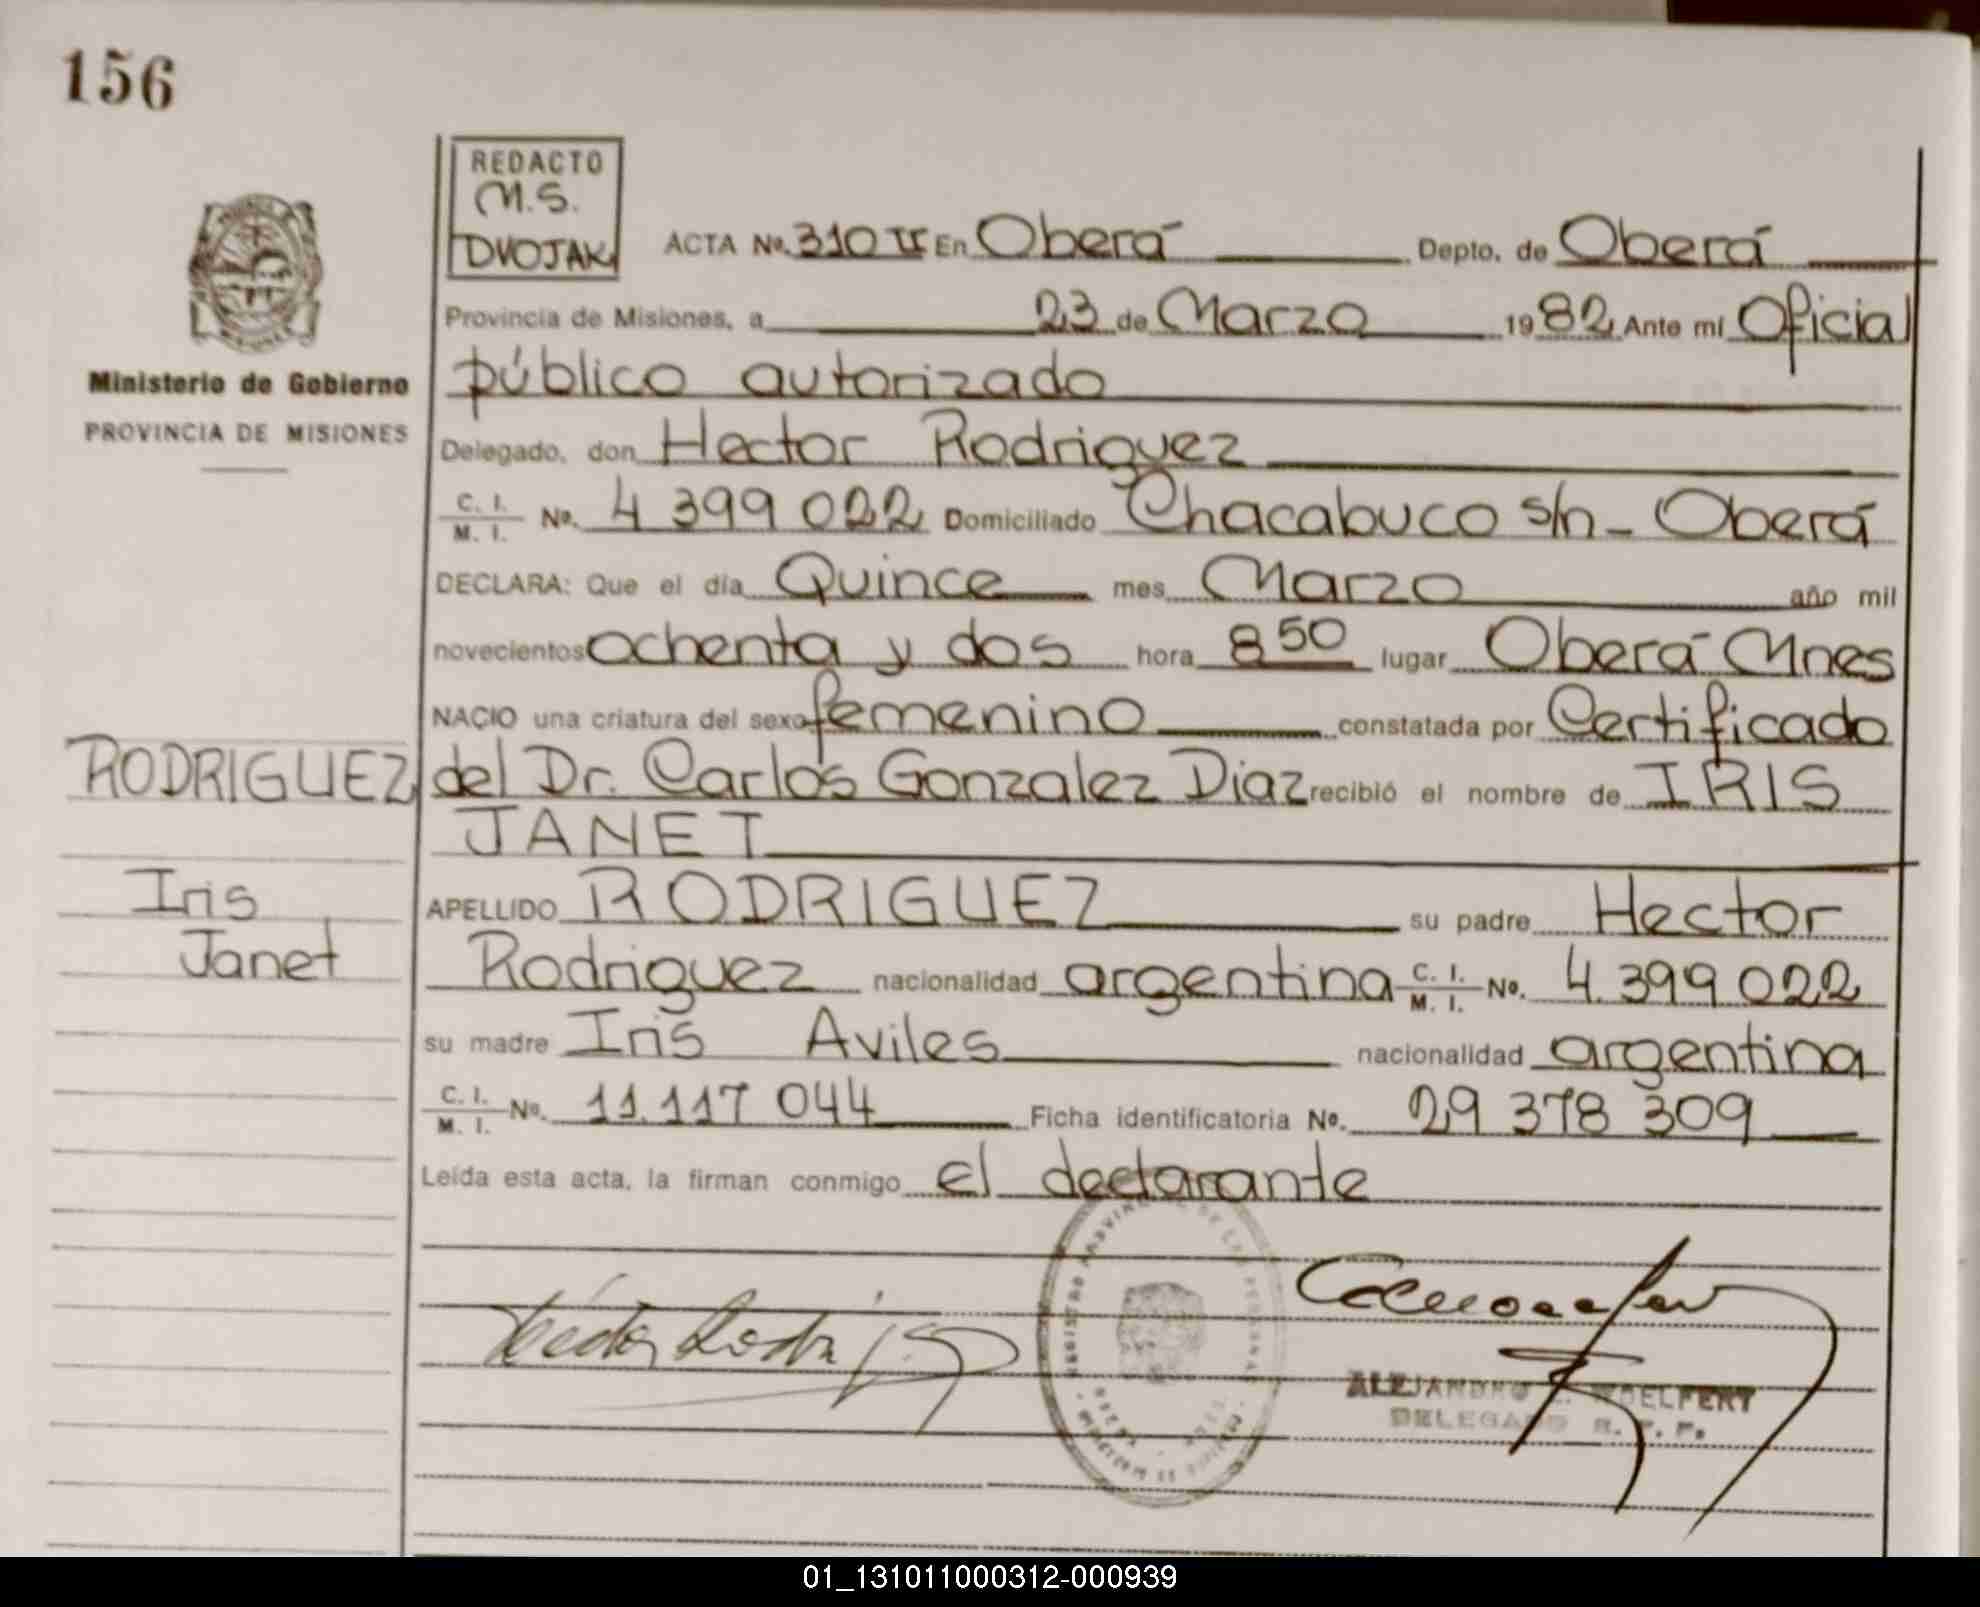 156
REDACTO
M.S.
DVOJAK
ACTA No. 310 II En Oberá Depto. de Oberá
Provincia de Misiones, a 23 de Marzo 1982 Ante mí Oficial
Ministerio de Gobierno
PROVINCIA DE MISIONES
público autorizado
Delegado, don Hector Rodriguez
C. I.
M. I. No. 4 399 022 Domiciliado Chacabuco s/n - Oberá
DECLARA: Que el día Quince mes Marzo año mil
novecientos ochenta y dos hora 8 50 lugar Oberá Mnes
NACIO una criatura del sexo femenino constatada por Certificado
RODRIGUEZ
del Dr. Carlos Gonzalez Diaz recibió el nombre de IRIS
JANET
Iris
Janet
APELLIDO RODRIGUEZ su padre Hector
Rodriguez nacionalidad argentina C. I. M. I. No. 4.399 022
su madre Iris Aviles nacionalidad argentina
C. I.
M. I. No. 11.117 044 Ficha identificatoria No. 29 378 309
Leída esta acta, la firman conmigo el declarante
Héctor Rodríguez
REGISTRO PROVINCIAL DE LAS PERSONAS
ALEJANDRO WOELFERT
DELEGADO R. P. P.
01_131011000312-000939